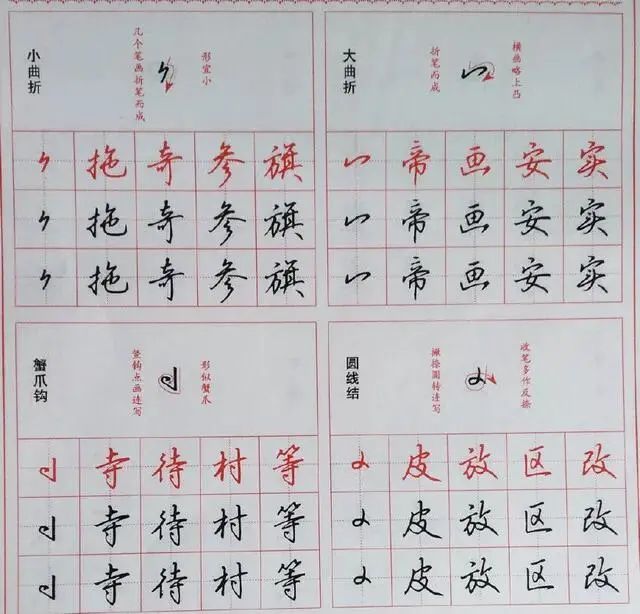 小曲折
几个笔画折笔而成
形宜小
拖 奇 参 旗
拖 奇 参 旗
拖 奇 参 旗
大曲折
折笔而成
横画略上凸
帝 画 安 实
帝 画 安 实
帝 画 安 实
蟹爪钩
竖钩点画连写
形似蟹爪
寺 待 村 等
寺 待 村 等
寺 待 村 等
圆线结
撇捺圆转连写
收笔多作反捺
皮 放 区 改
皮 放 区 改
皮 放 区 改